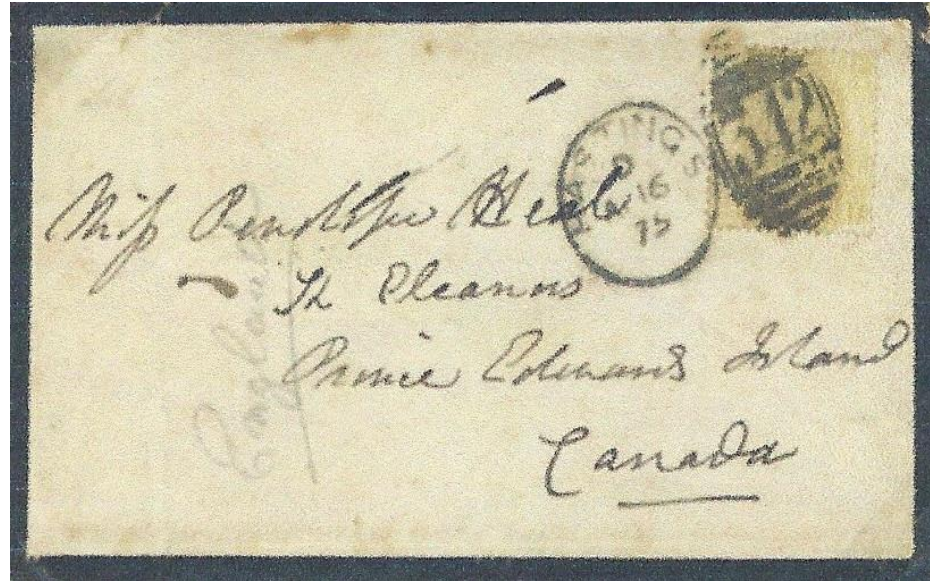 HASTINGS
16
75
542
Miss Penelope Heal
St Eleanors
Prince Edward Island
Canada
England